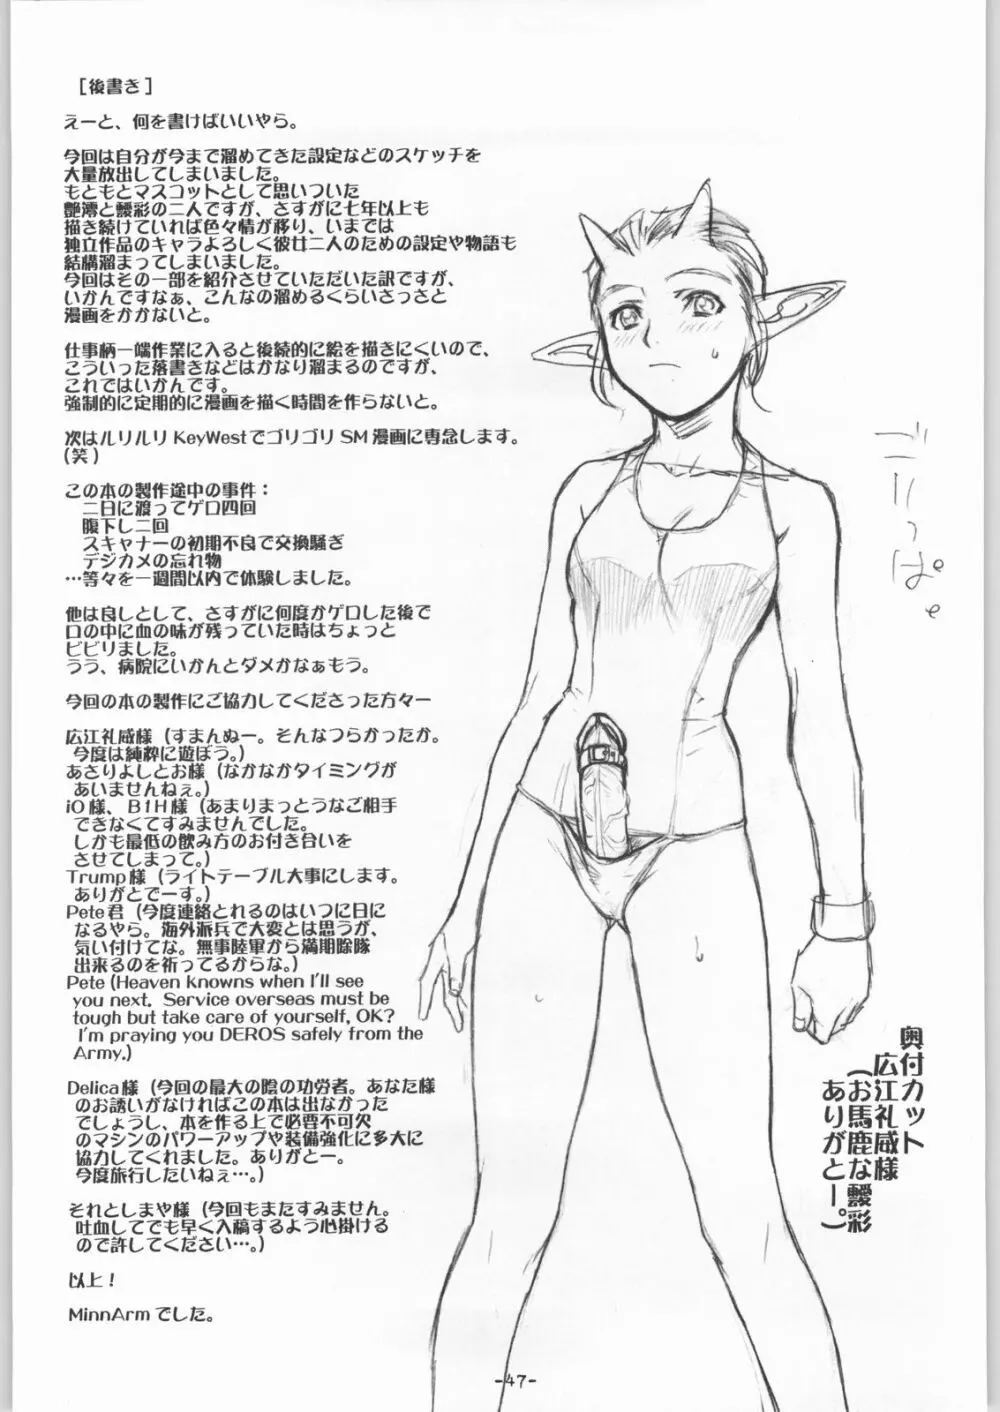 [後書き]
えーと、何を書けばいいやら。
今回は自分が今まで溜めてきた設定などのスケッチを
大量放出してしまいました。
もともとマスコットとして思いついた
艶澪と靉彩の二人ですが、さすがに七年以上も
描き続けていれば色々情が移り、いまでは
独立作品のキャラよろしく彼女二人のための設定や物語も
結構溜まってしまいました。
今回はその一部を紹介させていただいた訳ですが、
いかんですなぁ、こんなの溜めるくらいさっさと
漫画をかかないと。
仕事柄一端作業に入ると後続的に絵を描きにくいので、
こういった落書きなどはかなり溜まるのですが、
これではいかんです。
強制的に定期的に漫画を描く時間を作らないと。
次はルリルリKeyWestでゴリゴリSM漫画に専念します。
(笑)
この本の製作途中の事件：
二日に渡ってゲロ四回
腹下し二回
スキャナーの初期不良で交換騒ぎ
デジカメの忘れ物
…等々を一週間以内で体験しました。
他は良しとして、さすがに何度かゲロした後で
口の中に血の味が残っていた時はちょっと
ビビりました。
うう、病院にいかんとダメかなぁもう。
今回の本の製作にご協力してくださった方々ー
広江礼威様（すまんぬー。そんなつらかったか。
今度は純粋に遊ぼう。）
あさりよしとお様（なかなかタイミングが
あいませんねぇ。）
iO様、B1H様（あまりまっとうなご相手
できなくてすみませんでした。
しかも最低の飲み方のお付き合いを
させてしまって。）
Trump様（ライトテーブル大事にします。
ありがとでーす。）
Pete君（今度連絡とれるのはいつに日に
なるやら。海外派兵で大変とは思うが、
気い付けてな。無事陸軍から満期除隊
出来るのを祈ってるからな。）
Pete (Heaven knowns when I'll see
you next. Service overseas must be
tough but take care of yourself, OK?
I'm praying you DEROS safely from the
Army.)
Delica様（今回の最大の陰の功労者。あなた様
のお誘いがなければこの本は出なかった
でしょうし、本を作る上で必要不可欠
のマシンのパワーアップや装備強化に多大に
協力してくれました。ありがとー。
今度旅行したいねぇ…。）
それとしまや様（今回もまたすみません。
吐血してでも早く入稿するよう心掛ける
ので許してください…。）
以上！
MinnArmでした。
ごりっぱ。
奥付カット
広江礼威様
（お馬鹿な靉彩
ありがとー。）
-47-